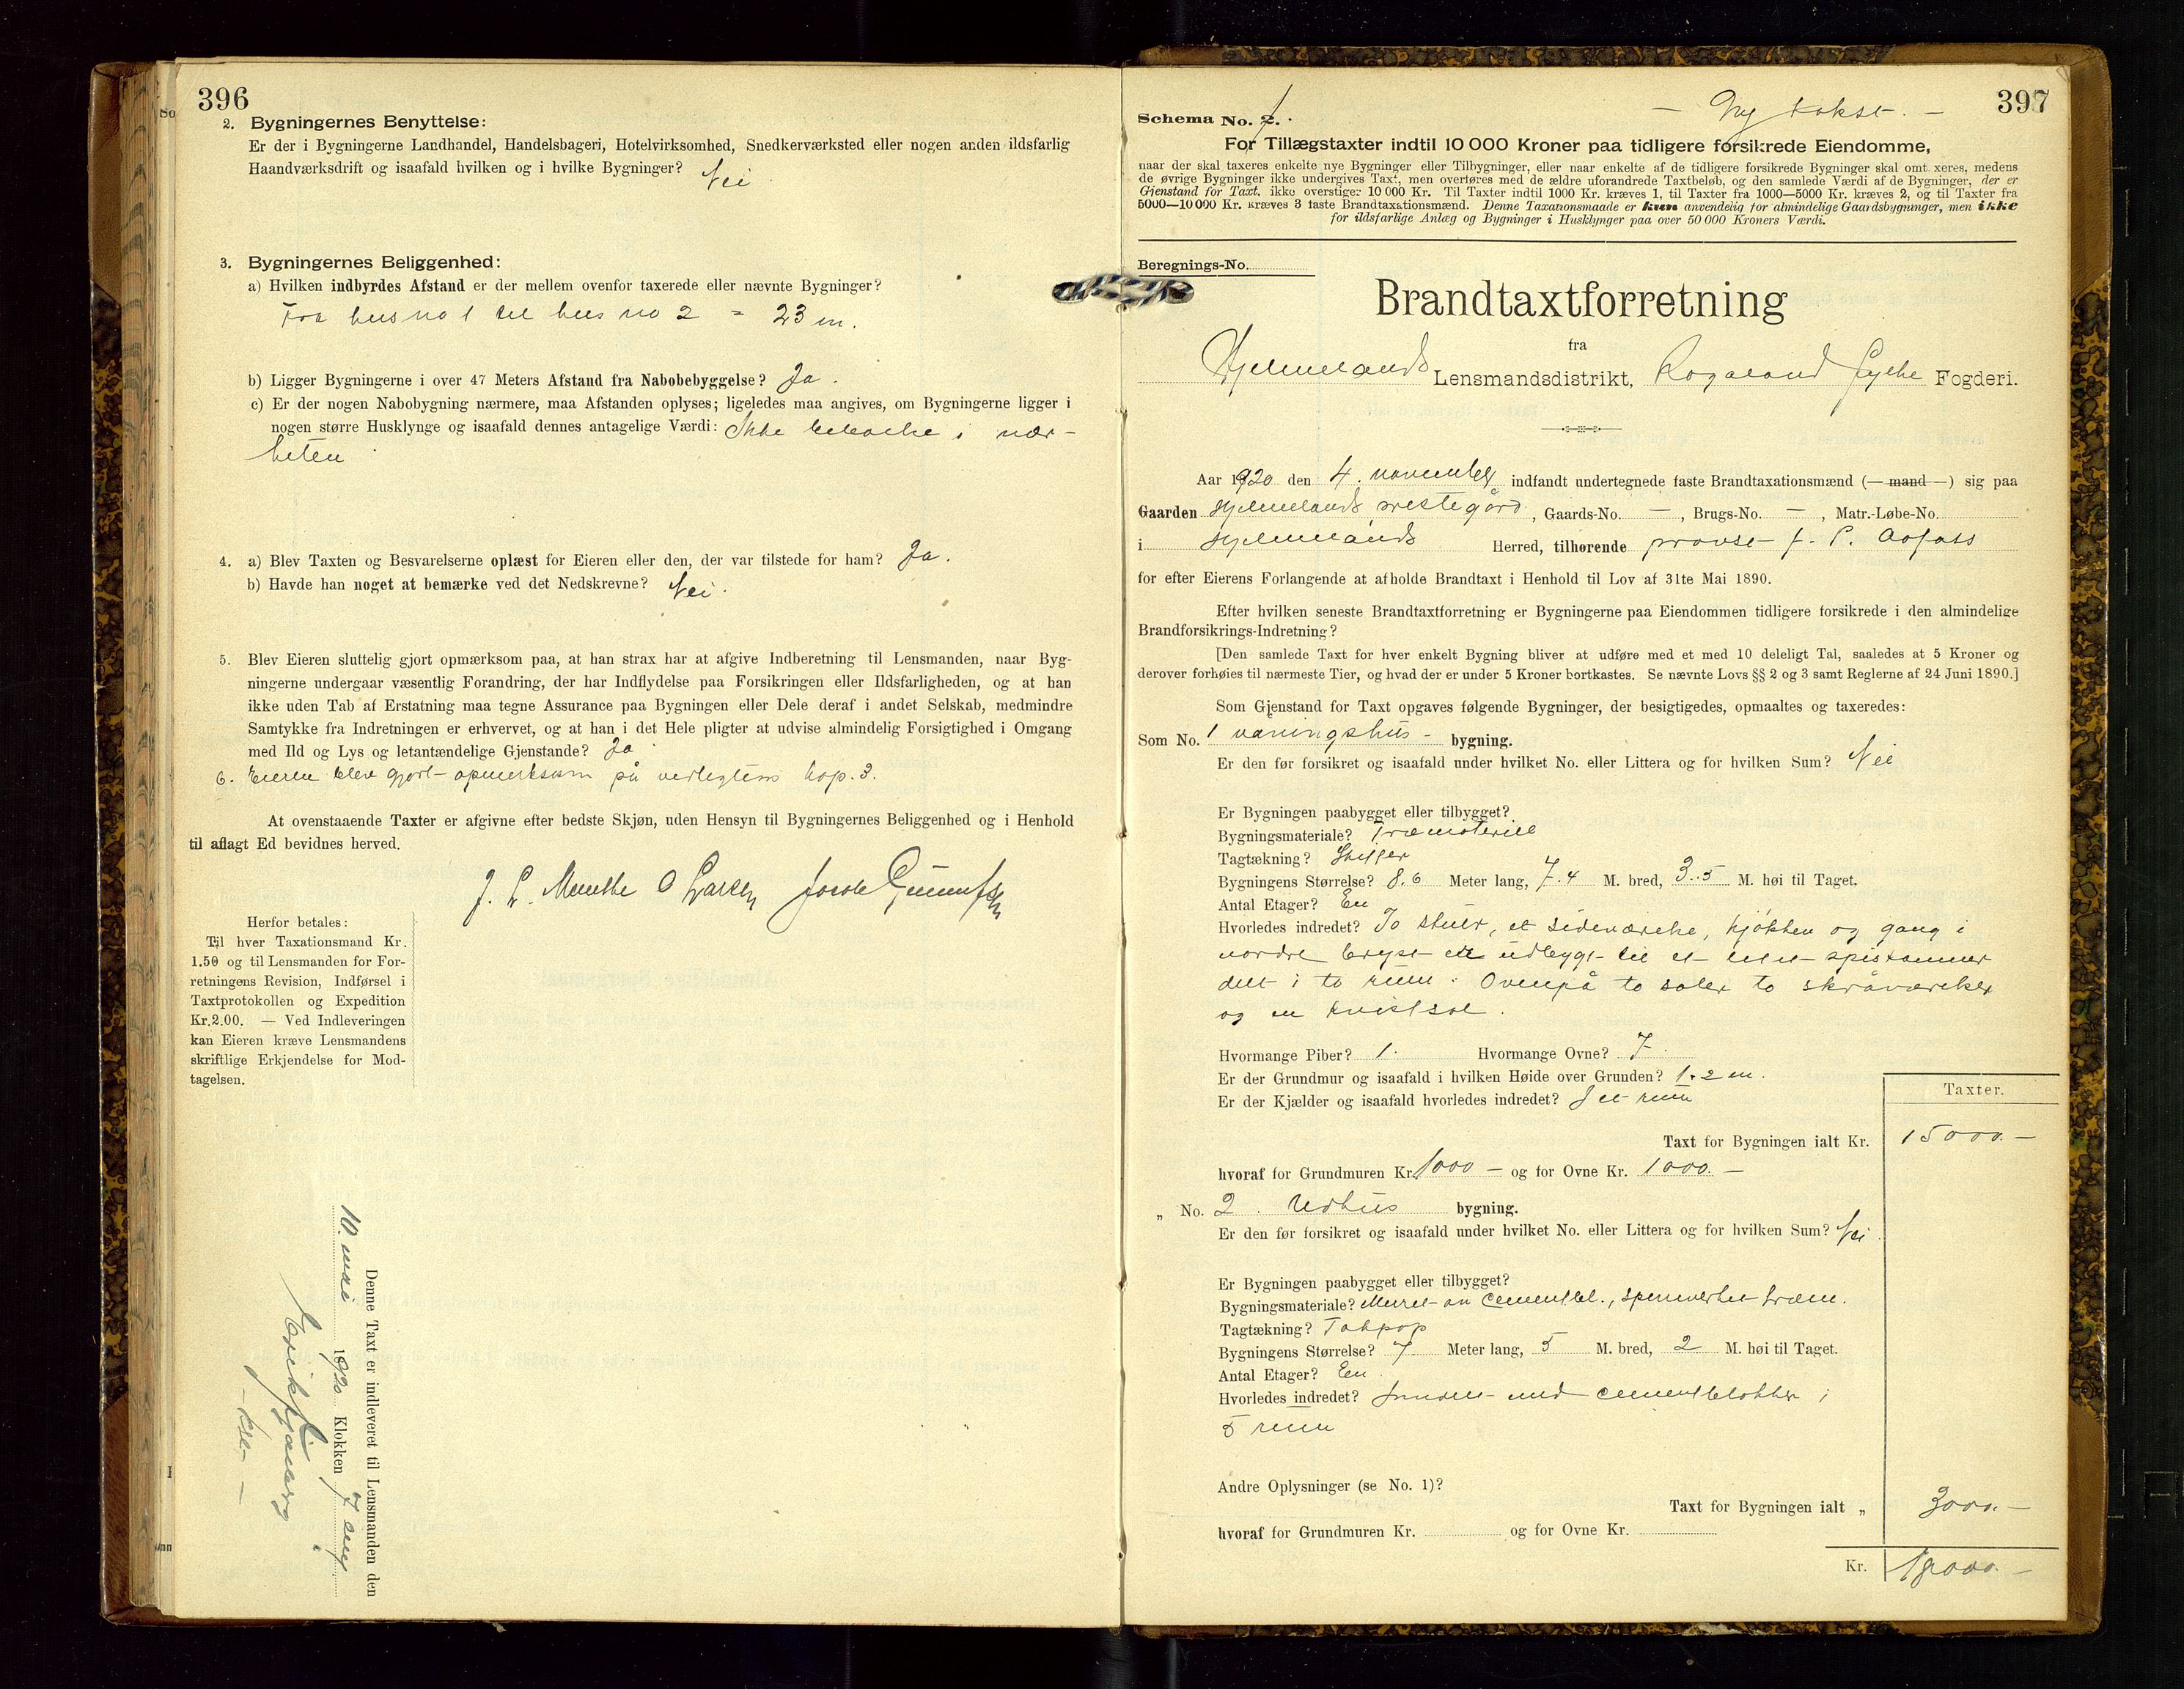 396
2. Bygningernes Benyttelse:
Er der i Bygningerne Landhandel, Handelsbageri, Hotelvirksomhed, Snedkerværksted eller nogen anden ildsfarlig
Haandværksdrift og isaafald hvilken og i hvilke Bygninger? Nei
3. Bygningernes Beliggenhed:
a) Hvilken indbyrdes Afstand er der mellem ovenfor taxerede eller nævnte Bygninger?
Fra hus no 1 til hus no 2 = 23 m.
b) Ligger Bygningerne i over 47 Meters Afstand fra Nabobebyggelse? Ja.
c) Er der nogen Nabobygning nærmere, maa Afstanden oplyses; ligeledes maa angives, om Bygningerne ligger i
nogen større Husklynge og isaafald dennes antagelige Værdi: Ikke i nær-
heten
4. a) Blev Taxten og Besvarelserne oplæst for Eieren eller den, der var tilstede for ham? Ja.
b) Havde han noget at bemærke ved det Nedskrevne? Nei.
5. Blev Eieren sluttelig gjort opmærksom paa, at han strax har at afgive Indberetning til Lensmanden, naar Byg-
ningerne undergaar væsentlig Forandring, der har Indflydelse paa Forsikringen eller Ildsfarligheden, og at han
ikke uden Tab af Erstatning maa tegne Assurance paa Bygningen eller Dele deraf i andet Selskab, medmindre
Samtykke fra Indretningen er erhvervet, og at han i det Hele pligter at udvise almindelig Forsigtighed i Omgang
med Ild og Lys og letantændelige Gjenstande? Ja
6. Eieren blev gjort opmerksom på kap. 3.
At ovenstaaende Taxter er afgivne efter bedste Skjøn, uden Hensyn til Bygningernes Beliggenhed og i Henhold
til aflagt Ed bevidnes herved.
J. L. Munthe O Larsen
Herfor betales:
Til hver Taxationsmand Kr.
1.50 og til Lensmanden for For-
retningens Revision, Indførsel i
Taxtprotokollen og Expedition
Kr. 2.00. — Ved Indleveringen
kan Eieren kræve Lensmandens
skriftlige Erkjendelse for Mod-
tagelsen.
Denne Taxt er indleveret til Lensmanden den
10. mai 1920 Klokken 7
397
Schema No. 1.
— Ny takst. —
For Tillægstaxter indtil 10 000 Kroner paa tidligere forsikrede Eiendomme,
naar der skal taxeres enkelte nye Bygninger eller Tilbygninger, eller naar enkelte af de tidligere forsikrede Bygninger skal omt xeres, medens
de øvrige Bygninger ikke undergives Taxt, men overføres med de ældre uforandrede Taxtbeløb, og den samlede Værdi af de Bygninger, der er
Gjenstand for Taxt, ikke overstiger 10 000 Kr. Til Taxter indtil 1000 Kr. kræves 1, til Taxter fra 1000—5000 Kr. kræves 2, og til Taxter fra
5000—10 000 Kr. kræves 3 faste Brandtaxationsmænd. Denne Taxationsmaade er kun anvendelig for almindelige Gaardsbygninger, men ikke
for ildsfarlige Anlæg og Bygninger i Husklynger paa over 50 000 Kroners Værdi.
Beregnings-No.
Brandtaxtforretning
fra
Hjelmelands Lensmandsdistrikt, Rogaland fylke Fogderi.
Aar 1920 den 4. november indfandt undertegnede faste Brandtaxationsmænd (— mand —) sig paa
Gaarden Hjelmelands prestegård, Gaards-No. —, Brugs-No. —, Matr.-Løbe-No.
i Hjelmelands Herred, tilhørende provst
for efter Eierens Forlangende at afholde Brandtaxt i Henhold til Lov af 31te Mai 1890.
Efter hvilken seneste Brandtaxtforretning er Bygningerne paa Eiendommen tidligere forsikrede i den almindelige
Brandforsikrings-Indretning?
[Den samlede Taxt for hver enkelt Bygning bliver at udføre med et med 10 deleligt Tal, saaledes at 5 Kroner og
derover forhøies til nærmeste Tier, og hvad der er under 5 Kroner bortkastes. Se nævnte Lovs §§ 2 og 3 samt Reglerne af 24 Juni 1890.]
Som Gjenstand for Taxt opgaves følgende Bygninger, der besigtigedes, opmaaltes og taxeredes:
Som No. 1 våningshus - bygning.
Er den før forsikret og isaafald under hvilket No. eller Littera og for hvilken Sum? Nei
Er Bygningen paabygget eller tilbygget?
Bygningsmateriale? Træmateriell
Tagtækning? Skiffer
Bygningens Størrelse? 8.6 Meter lang, 7.4 M. bred, 3.5 M. høi til Taget.
Antal Etager? En
Hvorledes indredet? To stuer, et sideværelse, kjøkken og gang i
nordre et udbygg til et spiskammer
delt i to rum. Ovenpå to saler to skråværelser
og en kvistsal.
Hvormange Piber? 1. Hvormange Ovne? 7.
Er der Grundmur og isaafald i hvilken Høide over Grunden? 1.2 m.
Er der Kjælder og isaafald hvorledes indredet? I et rum
Taxter.
Taxt for Bygningen ialt Kr. 15000.—
hvoraf for Grundmuren Kr. 1000 — og for Ovne Kr. 1000.—
„ No. 2. Udhus bygning.
Er den før forsikret og isaafald under hvilket No. eller Littera og for hvilken Sum? Nei.
Er Bygningen paabygget eller tilbygget?
Bygningsmateriale? Muret av cementbl.,
Tagtækning? Takpap
Bygningens Størrelse? 7 Meter lang, 5 M. bred, 2 M. høi til Taget.
Antal Etager? En
Hvorledes indredet? med cementblokker i
5 rum
Andre Oplysninger (se No. 1)?
Taxt for Bygningen ialt „ 3000.—
hvoraf for Grundmuren Kr. og for Ovne Kr.
Kr. 18000.—